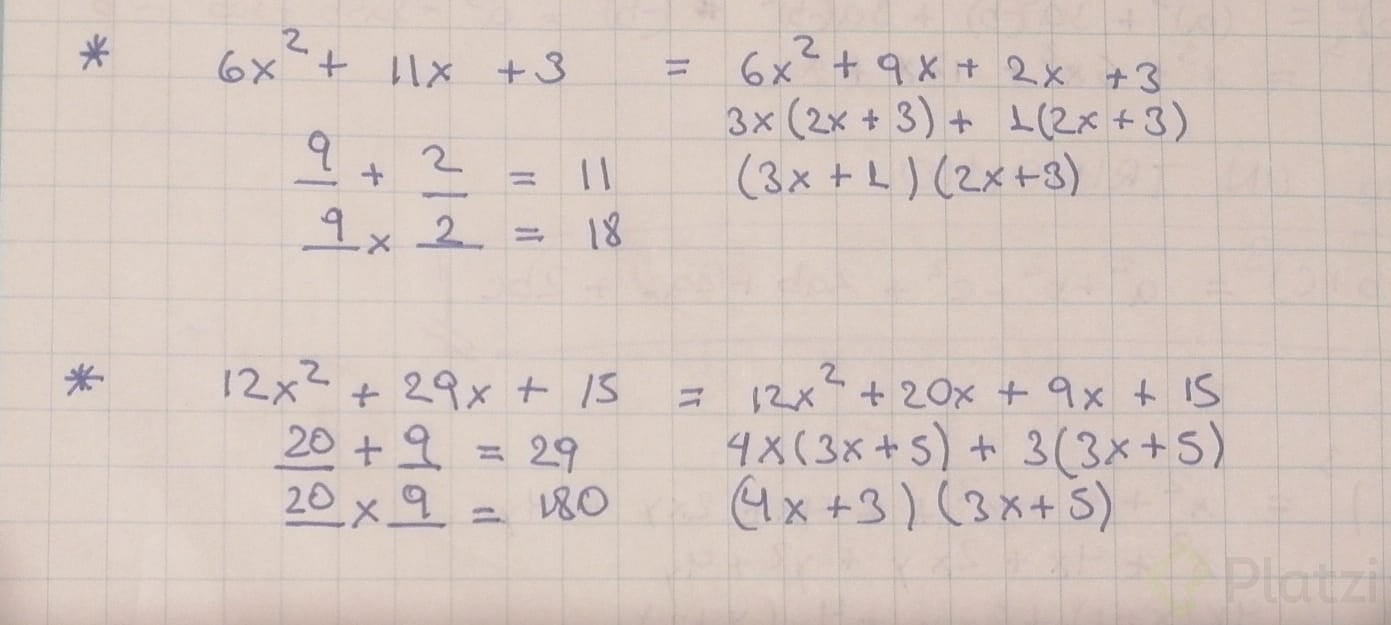 * 6x² + 11x + 3 = 6x² + 9x + 2x + 3
3x(2x + 3) + 1(2x + 3)
9 + 2 = 11 (3x + 1)(2x + 3)
9 x 2 = 18
* 12x² + 29x + 15 = 12x² + 20x + 9x + 15
20 + 9 = 29 4x(3x + 5) + 3(3x + 5)
20 x 9 = 180 (4x + 3)(3x + 5)
Platzi